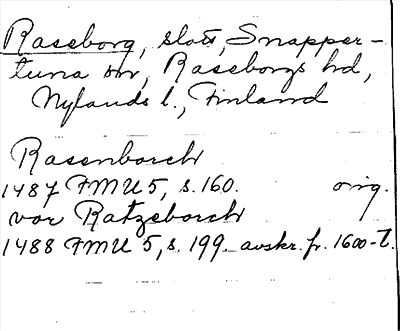 Raseborg, slott, Snapper-
tuna sn, Raseborgs hd,
Nylands l., Finland
Rasenborch
1487 FMU 5, s. 160. orig.
vor Ratzeborch
1488 FMU 5, s. 199. avskr. fr. 1600-t.